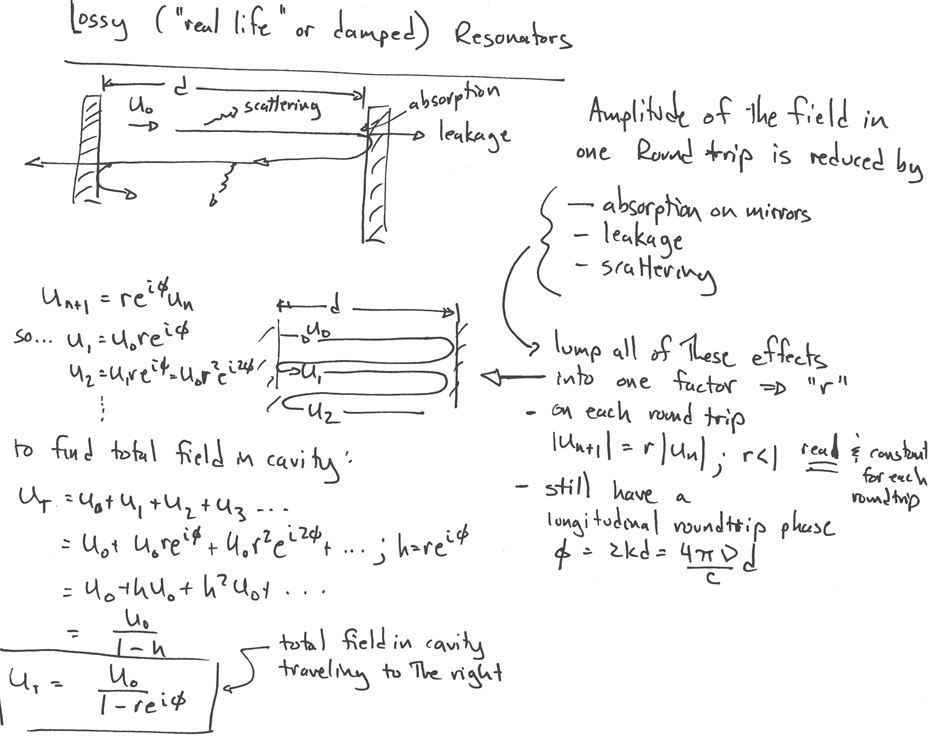 Lossy ("real life" or damped) Resonators
d
U₀
scattering
absorption
leakage
Amplitude of the field in
one Round trip is reduced by
— absorption on mirrors
- leakage
- scattering
Uₙ₊₁ = re^{iϕ}Uₙ
so... U₁ = U₀re^{iϕ}
U₂ = U₁re^{iϕ} = U₀r²e^{i2ϕ}
⋮
d
U₀
U₁
U₂
lump all of These effects
into one factor ⇒ "r"
- on each round trip
|Uₙ₊₁| = r|Uₙ| ; r<1 real & constant
for each
roundtrip
- still have a
longitudinal roundtrip phase
ϕ = 2kd = 4πν/c d
to find total field in cavity:
U_T = U₀ + U₁ + U₂ + U₃ ...
= U₀ + U₀re^{iϕ} + U₀r²e^{i2ϕ} + ... ; h=re^{iϕ}
= U₀ + hU₀ + h²U₀ + ...
= U₀/(1-h)
U_T = U₀/(1-re^{iϕ})
total field in cavity
traveling to The right